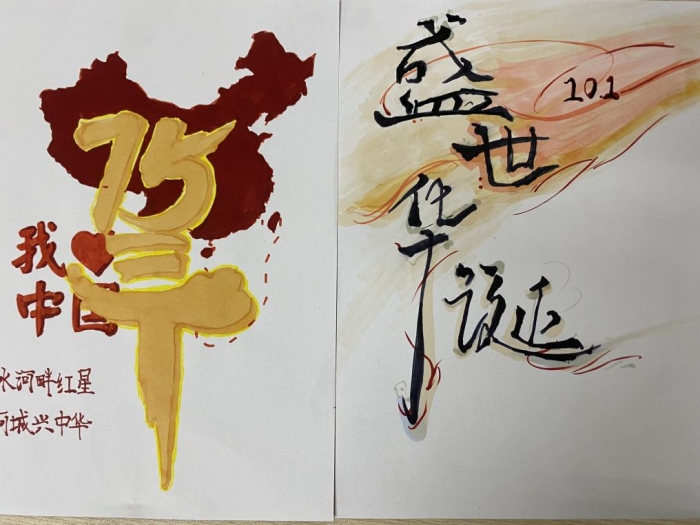 75
年
我
中国
水河畔红星
城兴中华
盛世华诞
10.1